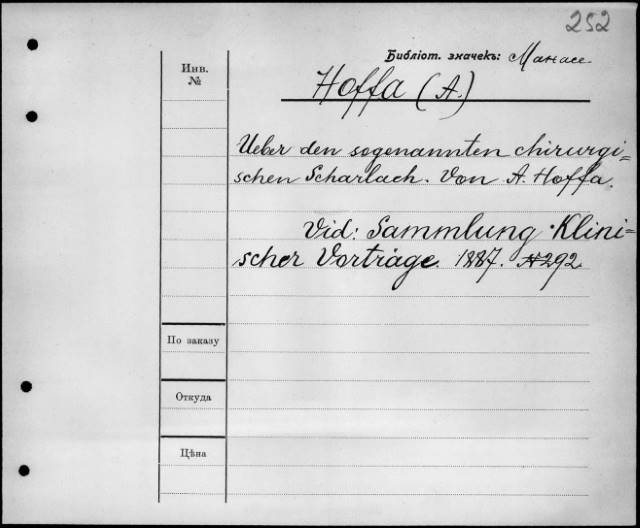 252
Библіот. значекъ: Манасе
Инв.
№
Hoffa (A.)
Ueber den sogenannten chirurgi=
schen Scharlach. Von A. Hoffa.
Vid: Sammlung Klini=
scher Vorträge. 1887. №292.
По заказу
Откуда
Цѣна